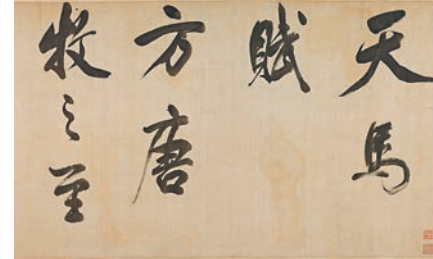 天馬
賦
方唐
牧之至